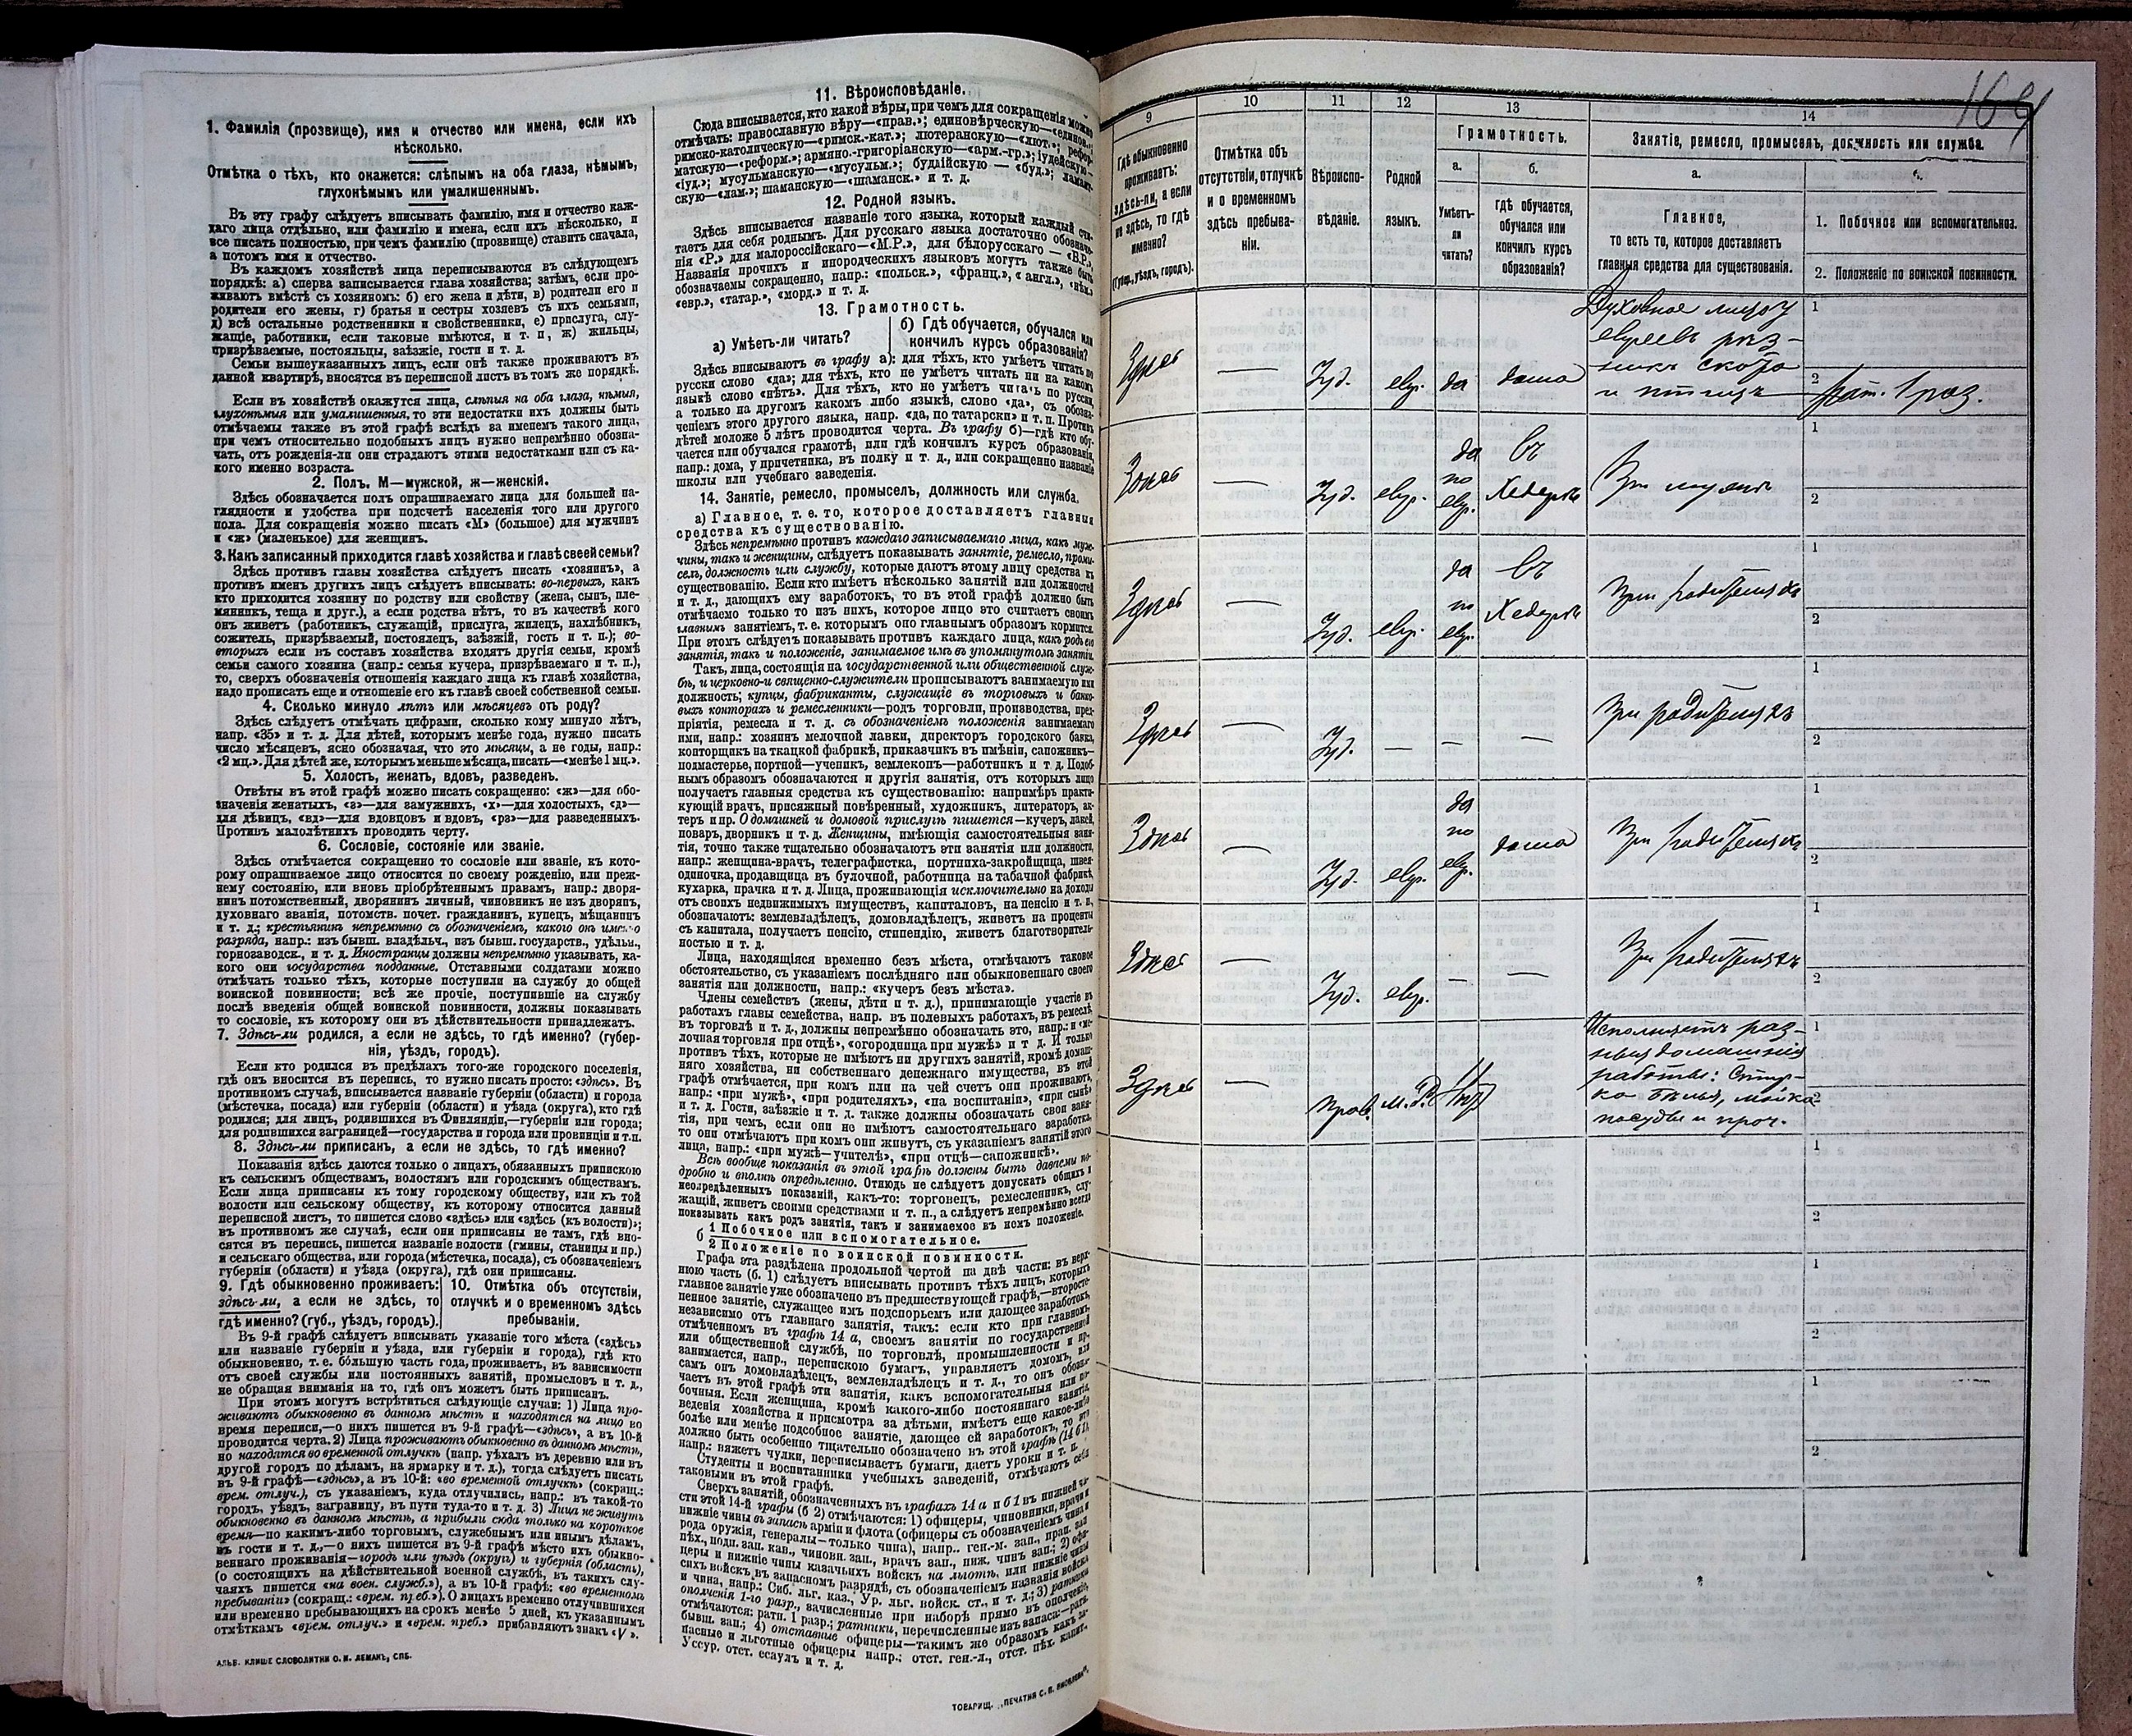 1. Фамилія (прозвище), имя и отчество или имена, если ихъ
нѣсколько.
Отмѣтка о тѣхъ, кто окажется: слѣпымъ на оба глаза, нѣмымъ,
глухонѣмымъ или умалишеннымъ.
Въ эту графу слѣдуетъ вписывать фамилію, имя и отчество каж-
даго лица отдѣльно, или фамилію и имена, если ихъ нѣсколько, и
все писать полностью, при чемъ фамилію (прозвище) ставить сначала,
а потомъ имя и отчество.
Въ каждомъ хозяйствѣ лица переписываются въ слѣдующемъ
порядкѣ: а) сперва записывается глава хозяйства; затѣмъ, если про-
живаютъ вмѣстѣ съ хозяиномъ: б) его жена и дѣти, в) родители его и
родители его жены, г) братья и сестры хозяевъ съ ихъ семьями,
д) всѣ остальные родственники и свойственники, е) прислуга, слу-
жащіе, работники, если таковые имѣются, и т. п., ж) жильцы,
призрѣваемые, постояльцы, заѣзжіе, гости и т. д.
Семьи вышеуказанныхъ лицъ, если онѣ также проживаютъ въ
данной квартирѣ, вносятся въ переписной листъ въ томъ же порядкѣ.
Если въ хозяйствѣ окажутся лица, слѣпыя на оба глаза, нѣмыя,
глухонѣмыя или умалишенныя, то эти недостатки ихъ должны быть
отмѣчаемы также въ этой графѣ вслѣдъ за именемъ такого лица,
при чемъ относительно подобныхъ лицъ нужно непремѣнно обозна-
чать, отъ рожденія-ли они страдаютъ этими недостатками или съ ка-
кого именно возраста.
2. Полъ. М—мужской, ж—женскій.
Здѣсь обозначается полъ опрашиваемаго лица для большей на-
глядности и удобства при подсчетѣ населенія того или другого
пола. Для сокращенія можно писать «М» (большое) для мужчинъ
и «ж» (маленькое) для женщинъ.
3. Какъ записанный приходится главѣ хозяйства и главѣ своей семьи?
Здѣсь противъ главы хозяйства слѣдуетъ писать «хозяинъ», а
противъ именъ другихъ лицъ слѣдуетъ вписывать: во-первыхъ, какъ
кто приходится хозяину по родству или свойству (жена, сынъ, пле-
мянникъ, теща и друг.), а если родства нѣтъ, то въ качествѣ кого
онъ живетъ (работникъ, служащій, прислуга, жилецъ, нахлѣбникъ,
сожитель, призрѣваемый, постоялецъ, заѣзжій, гость и т. п.); во-
вторыхъ если въ составъ хозяйства входятъ другія семьи, кромѣ
семьи самого хозяина (напр.: семья кучера, призрѣваемаго и т. п.),
то, сверхъ обозначенія отношенія каждаго лица къ главѣ хозяйства,
надо прописать еще и отношеніе его къ главѣ своей собственной семьи.
4. Сколько минуло лѣтъ или мѣсяцевъ отъ роду?
Здѣсь слѣдуетъ отмѣчать цифрами, сколько кому минуло лѣтъ,
напр. «35» и т. д. Для дѣтей, которымъ менѣе года, нужно писать
число мѣсяцевъ, ясно обозначая, что это мѣсяцы, а не годы, напр.:
«2 мц.». Для дѣтей же, которымъ меньше мѣсяца, писать—«менѣе 1 мц.».
5. Холостъ, женатъ, вдовъ, разведенъ.
Отвѣты въ этой графѣ можно писать сокращенно: «ж»—для обо-
значенія женатыхъ, «з»—для замужнихъ, «х»—для холостыхъ, «д»—
для дѣвицъ, «вд»—для вдовцовъ и вдовъ, «рз»—для разведенныхъ.
Противъ малолѣтнихъ проводить черту.
6. Сословіе, состояніе или званіе.
Здѣсь отмѣчается сокращенно то сословіе или званіе, къ кото-
рому опрашиваемое лицо относится по своему рожденію, или преж-
нему состоянію, или вновь пріобрѣтеннымъ правамъ, напр.: дворя-
нинъ потомственный, дворянинъ личный, чиновникъ не изъ дворянъ,
духовнаго званія, потомств. почет. гражданинъ, купецъ, мѣщанинъ
и т. д.; крестьянинъ непремѣнно съ обозначеніемъ, какого онъ именно
разряда, напр.: изъ бывш. владѣльч., изъ бывш. государств., удѣльн.,
горнозаводск., и т. д. Иностранцы должны непремѣнно указывать, ка-
кого они государства подданные. Отставными солдатами можно
отмѣчать только тѣхъ, которые поступили на службу до общей
воинской повинности; всѣ же прочіе, поступившіе на службу
послѣ введенія общей воинской повинности, должны показывать
то сословіе, къ которому они въ дѣйствительности принадлежатъ.
7. Здѣсь-ли родился, а если не здѣсь, то гдѣ именно? (губер-
нія, уѣздъ, городъ).
Если кто родился въ предѣлахъ того-же городского поселенія,
гдѣ онъ вносится въ перепись, то нужно писать просто: «здѣсь». Въ
противномъ случаѣ, вписывается названіе губерніи (области) и города
(мѣстечка, посада) или губерніи (области) и уѣзда (округа), кто гдѣ
родился; для лицъ, родившихся въ Финляндіи,—губерніи или города;
для родившихся заграницей—государства и города или провинціи и т.п.
8. Здѣсь-ли приписанъ, а если не здѣсь, то гдѣ именно?
Показанія здѣсь даются только о лицахъ, обязанныхъ припискою
къ сельскимъ обществамъ, волостямъ или городскимъ обществамъ.
Если лица приписаны къ тому городскому обществу, или къ той
волости или сельскому обществу, къ которому относится данный
переписной листъ, то пишется слово «здѣсь» или «здѣсь (къ волости)»;
въ противномъ же случаѣ, если они приписаны не тамъ, гдѣ вно-
сятся въ перепись, пишется названіе волости (гмины, станицы и пр.)
и сельскаго общества, или города (мѣстечка, посада), съ обозначеніемъ
губерніи (области) и уѣзда (округа), гдѣ они приписаны.
9. Гдѣ обыкновенно проживаетъ:
здѣсь-ли, а если не здѣсь, то
гдѣ именно? (губ., уѣздъ, городъ).
10. Отмѣтка объ отсутствіи,
отлучкѣ и о временномъ здѣсь
пребываніи.
Въ 9-й графѣ слѣдуетъ вписывать указаніе того мѣста («здѣсь»
или названіе губерніи и уѣзда, или губерніи и города), гдѣ кто
обыкновенно, т. е. бо́льшую часть года, проживаетъ, въ зависимости
отъ своей службы или постоянныхъ занятій, промысловъ и т. д.,
не обращая вниманія на то, гдѣ онъ можетъ быть приписанъ.
При этомъ могутъ встрѣтиться слѣдующіе случаи: 1) Лица про-
живаютъ обыкновенно въ данномъ мѣстѣ и находятся на лицо во
время переписи,—о нихъ пишется въ 9-й графѣ—«здѣсь», а въ 10-й
проводится черта. 2) Лица проживаютъ обыкновенно въ данномъ мѣстѣ,
но находятся во временной отлучкѣ (напр. уѣхалъ въ деревню или въ
другой городъ по дѣламъ, на ярмарку и т. д.), тогда слѣдуетъ писать
въ 9-й графѣ—«здѣсь», а въ 10-й: «во временной отлучкѣ» (сокращ.:
врем. отлуч.), съ указаніемъ, куда отлучились, напр.: въ такой-то
городъ, уѣздъ, заграницу, въ пути туда-то и т. д. 3) Лица не живутъ
обыкновенно въ данномъ мѣстѣ, а прибыли сюда только на короткое
время—по какимъ-либо торговымъ, служебнымъ или инымъ дѣламъ,
въ гости и т. д.,—о нихъ пишется въ 9-й графѣ мѣсто ихъ обыкно-
веннаго проживанія—городъ или уѣздъ (округъ) и губернія (область),
(о состоящихъ на дѣйствительной военной службѣ, въ такихъ слу-
чаяхъ пишется «на воен. службѣ.»), а въ 10-й графѣ: «во временномъ
пребываніи» (сокращ.: «врем. преб.»). О лицахъ временно отлучившихся
или временно пребывающихъ на срокъ менѣе 5 дней, къ указаннымъ
отмѣткамъ «врем. отлуч.» и «врем. преб.» прибавляютъ знакъ «V».
АЛЬВ. КЛИШЕ СЛОВОЛИТНИ О. И. ЛЕМАНЪ, СПБ.
11. Вѣроисповѣданіе.
Сюда вписывается, кто какой вѣры, при чемъ для сокращенія можно
отмѣчать: православную вѣру—«прав.»; единовѣрческую—«единов.»;
римско-католическую—«римск.-кат.»; лютеранскую—«лют.»; рефор-
матскую—«реформ.»; армяно.-григоріанскую—«арм.-гр.»; іудейскую—
«іуд.»; мусульманскую—«мусульм.»; буддійскую — «буд.»; ламаит-
скую—«лам.»; шаманскую—«шаманск.» и т. д.
12. Родной языкъ.
Здѣсь вписывается названіе того языка, который каждый счи-
таетъ для себя роднымъ. Для русскаго языка достаточно обозначе-
нія «Р.» для малороссійскаго—«М.Р.», для бѣлорусскаго — «Б.Р.».
Названія прочихъ и инородческихъ языковъ могутъ также быть
обозначаемы сокращенно, напр.: «польск.», «франц.», «англ.», «нѣм.»
«евр.», «татар.», «морд.» и т. д.
13. Грамотность.
а) Умѣетъ-ли читать?
б) Гдѣ обучается, обучался или
кончилъ курсъ образованія?
Здѣсь вписываютъ въ графу а): для тѣхъ, кто умѣетъ читать по
русски слово «да»; для тѣхъ, кто не умѣетъ читать ни на какомъ
языкѣ слово «нѣтъ». Для тѣхъ, кто не умѣетъ читать по русски,
а только на другомъ какомъ либо языкѣ, слово «да», съ обозна-
ченіемъ этого другого языка, напр. «да, по татарски» и т. п. Противъ
дѣтей моложе 5 лѣтъ проводится черта. Въ графу б)—гдѣ кто обу-
чается или обучался грамотѣ, или гдѣ кончилъ курсъ образованія,
напр.: дома, у причетника, въ полку и т. д., или сокращенно названіе
школы или учебнаго заведенія.
14. Занятіе, ремесло, промыселъ, должность или служба.
а) Главное, т. е. то, которое доставляетъ главныя
средства къ существованію.
Здѣсь непремѣнно противъ каждаго записываемаго лица, какъ муж-
чины, такъ и женщины, слѣдуетъ показывать занятіе, ремесло, промы-
селъ, должность или службу, которые даютъ этому лицу средства къ
существованію. Если кто имѣетъ нѣсколько занятій или должностей
и т. д., дающихъ ему заработокъ, то въ этой графѣ должно быть
отмѣчаемо только то изъ нихъ, которое лицо это считаетъ своимъ
главнымъ занятіемъ, т. е. которымъ оно главнымъ образомъ кормится.
При этомъ слѣдуетъ показывать противъ каждаго лица, какъ родъ его
занятія, такъ и положеніе, занимаемое имъ въ упомянутомъ занятіи.
Такъ, лица, состоящія на государственной или общественной служ-
бѣ, и церковно-и священно-служители прописываютъ занимаемую ими
должность; купцы, фабриканты, служащіе въ торговыхъ и банко-
выхъ конторахъ и ремесленники—родъ торговли, производства, пред-
пріятія, ремесла и т. д. съ обозначеніемъ положенія занимаемаго
ими, напр.: хозяинъ мелочной лавки, директоръ городского банка,
конторщикъ на ткацкой фабрикѣ, приказчикъ въ имѣніи, сапожникъ—
подмастерье, портной—ученикъ, землекопъ—работникъ и т д. Подоб-
нымъ образомъ обозначаются и другія занятія, отъ которыхъ лицо
получаетъ главныя средства къ существованію: напримѣръ практи-
кующій врачъ, присяжный повѣренный, художникъ, литераторъ, ак-
теръ и пр. О домашней и домовой прислугѣ пишется—кучеръ, лакей,
поваръ, дворникъ и т. д. Женщины, имѣющія самостоятельныя заня-
тія, точно также тщательно обозначаютъ эти занятія или должности,
напр.: женщина-врачъ, телеграфистка, портниха-закройщица, швея-
одиночка, продавщица въ булочной, работница на табачной фабрикѣ,
кухарка, прачка и т. д. Лица, проживающія исключительно на доходы
отъ своихъ недвижимыхъ имуществъ, капиталовъ, на пенсію и т. п.,
обозначаютъ: землевладѣлецъ, домовладѣлецъ, живетъ на проценты
съ капитала, получаетъ пенсію, стипендію, живетъ благотворитель-
ностью и т. д.
Лица, находящіяся временно безъ мѣста, отмѣчаютъ таковое
обстоятельство, съ указаніемъ послѣдняго или обыкновеннаго своего
занятія или должности, напр.: «кучеръ безъ мѣста».
Члены семействъ (жены, дѣти и т. д.), принимающіе участіе въ
работахъ главы семейства, напр. въ полевыхъ работахъ, въ ремеслѣ,
въ торговлѣ и т. д., должны непремѣнно обозначать это, напр.: и «ме-
лочная торговля при отцѣ», «огородница при мужѣ» и т д. И только
противъ тѣхъ, которые не имѣютъ ни другихъ занятій, кромѣ домаш-
няго хозяйства, ни собственнаго денежнаго имущества, въ этой
графѣ отмѣчается, при комъ или на чей счетъ они проживаютъ,
напр.: «при мужѣ», «при родителяхъ», «на воспитаніи», «при сынѣ»
и т. д. Гости, заѣзжіе и т. д. также должны обозначать свои заня-
тія, при чемъ, если они не имѣютъ самостоятельнаго заработка,
то они отмѣчаютъ при комъ они живутъ, съ указаніемъ занятій этого
лица, напр.: «при мужѣ—учителѣ», «при отцѣ—сапожникѣ».
Всѣ вообще показанія въ этой графѣ должны быть даваемы по-
дробно и вполнѣ опредѣленно. Отнюдь не слѣдуетъ допускать общихъ и
неопредѣленныхъ показаній, какъ-то: торговецъ, ремесленникъ, слу-
жащій, живетъ своими средствами и т. п., а слѣдуетъ непремѣнно всегда
показывать какъ родъ занятія, такъ и занимаемое въ немъ положеніе.
б 1 Побочное или вспомогательное.
2 Положеніе по воинской повинности.
Графа эта раздѣлена продольной чертой на двѣ части: въ верх-
нюю часть (б. 1) слѣдуетъ вписывать противъ тѣхъ лицъ, которыхъ
главное занятіе уже обозначено въ предшествующей графѣ,—второсте-
пенное занятіе, служащее имъ подспорьемъ или дающее заработокъ,
независимо отъ главнаго занятія, такъ: если кто при главномъ,
отмѣченномъ въ графѣ 14 а, своемъ занятіи по государственной
или общественной службѣ, по торговлѣ, промышленности и пр.,
занимается, напр., перепискою бумагъ, управляетъ домомъ, или
самъ онъ домовладѣлецъ, землевладѣлецъ и т. д., то онъ обозна-
чаетъ въ этой графѣ эти занятія, какъ вспомогательныя или по-
бочныя. Если женщина, кромѣ какого-либо постояннаго занятія,
веденія хозяйства и присмотра за дѣтьми, имѣетъ еще какое-либо
болѣе или менѣе подсобное занятіе, дающее ей заработокъ, то это
должно быть особенно тщательно обозначено въ этой графѣ (14 б 1),
напр.: вяжетъ чулки, переписываетъ бумаги, даетъ уроки и т. п.
Студенты и воспитанники учебныхъ заведеній, отмѣчаютъ себя
таковыми въ этой графѣ.
Сверхъ занятій, обозначенныхъ въ графахъ 14 а и б 1 въ нижней ча-
сти этой 14-й графы (б 2) отмѣчаются: 1) офицеры, чиновники, врачи и
нижніе чины въ запасѣ арміи и флота (офицеры съ обозначеніемъ чина и
рода оружія, генералы—только чина), напр.. ген.-м. зап., прап. зап.
пѣх., подп. зап. кав., чиновн. зап., врачъ зап., ниж. чинъ зап.; 2) офи-
церы и нижніе чины казачьихъ войскъ на льготѣ, или нижніе чины
сихъ войскъ въ запасномъ разрядѣ, съ обозначеніемъ названія войска
и чина, напр.: Сиб. льг. каз., Ур. льг. войск. ст., и т. д.; 3) ратники
ополченія 1-го разр., зачисленные при наборѣ прямо въ ополченіе,
отмѣчаются: ратн. 1 разр.; ратники, перечисленные изъ запаса:—ратн.
бывш. зап.; 4) отставные офицеры—такимъ же образомъ какъ за-
пасные и льготные офицеры напр.: отст. ген.-л., отст. пѣх. капит.,
Уссур. отст. есаулъ и т. д.
ТОВАРИЩ. „ПЕЧАТНЯ С. П. ЯКОВЛЕВА“.
9 10 11 12 13 14
Гдѣ обыкновенно
проживаетъ:
здѣсь-ли, а если
не здѣсь, то гдѣ
именно?
(Губ., уѣздъ, городъ).
Отмѣтка объ
отсутствіи, отлучкѣ
и о временномъ
здѣсь пребыва-
ніи.
Вѣроиспо-
вѣданіе.
Родной
языкъ.
Грамотность.
а.
Умѣетъ-
ли
читать?
б.
гдѣ обучается,
обучался или
кончилъ курсъ
образованія?
Занятіе, ремесло, промыселъ, должность или служба.
а.
Главное,
то есть то, которое доставляетъ
главныя средства для существованія.
1. Побочное или вспомогательное.
2. Положеніе по воинской повинности.
Здѣсь — Іуд. евр. да дома
Духовное лицо у
евреевъ рѣз-
никъ скота
и птицъ
1
2 Рат. 1 раз.
Здѣсь — Іуд. евр. да по евр. въ Хедерѣ При мужѣ
1
2
Здѣсь — Іуд. евр. да по евр. въ Хедерѣ При родителяхъ
1
2
Здѣсь — Іуд. — — — При родителяхъ
1
2
Здѣсь — Іуд. евр. да по евр. дома При родителяхъ
1
2
Здѣсь — Іуд. евр. — — При родителяхъ
1
2
Здѣсь — Прав. М.Р. Нѣтъ
Исполняетъ раз-
ныя домашнія
работы: Стир-
ка бѣлья, мойка
посуды и проч.
1
2
1
2
1
2
1
2